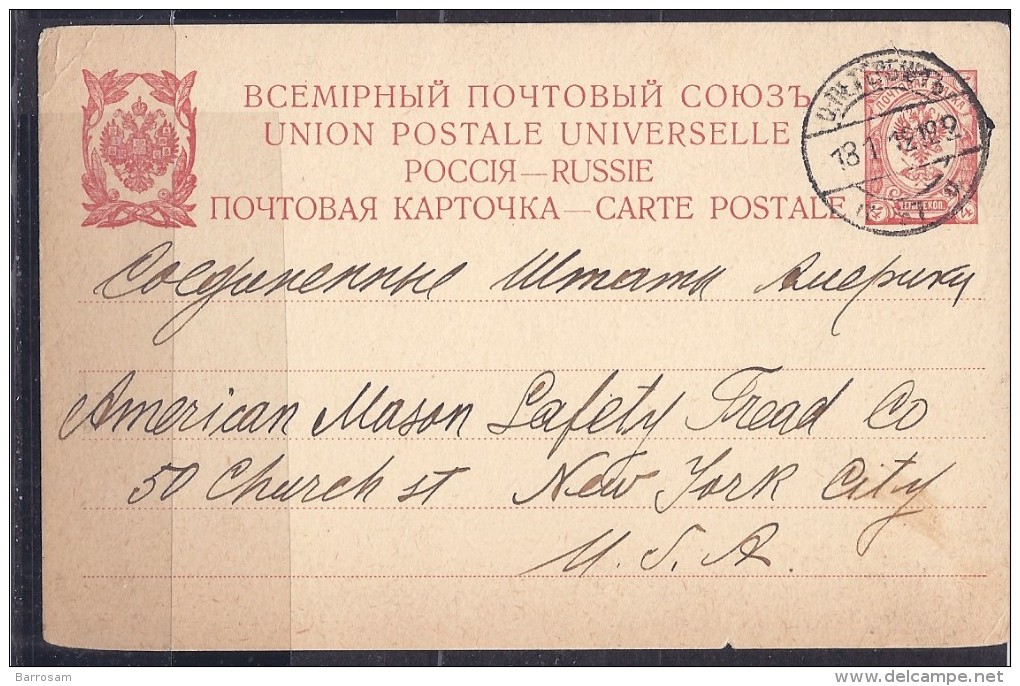 ВСЕМІРНЫЙ ПОЧТОВЫЙ СОЮЗЪ
UNION POSTALE UNIVERSELLE
РОССІЯ—RUSSIE
ПОЧТОВАЯ КАРТОЧКА—CARTE POSTALE
Соединенные Штаты Америки
American Mason Safety Tread Co
50 Church st New York City
U.S.A.
Barrosam
www.delcampe.net